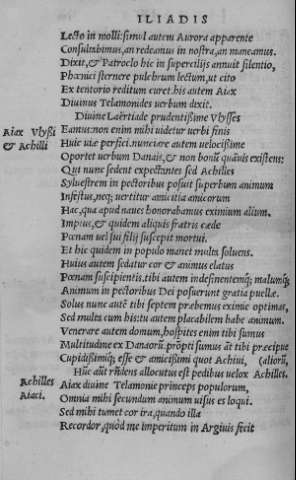 ILIADIS
Lecto in molli: simul autem Aurora apparente
Consultabimus, an redeamus in nostra, an maneamus.
Dixit, & Patroclo hic in supercilijs annuit silentio,
Phœnici sternere pulchrum lectum, ut cito
Ex tentorio reditum curet. his autem Aiax
Diuinus Telamonides uerbum dixit.
Diuine Laërtiade prudentissime Vlysses
Aiax Vlyßi Eamus: non enim mihi uidetur uerbi finis
& Achilli Huic uiæ perfici. nunciare autem uelocissime
Oportet uerbum Danais, & non bonū quāuis existens:
Qui nunc sedent expectantes sed Achilles
Syluestrem in pectoribus posuit superbum animum
Infestus, neq; uertitur amicitia amicorum
Hac, qua apud naues honorabamus eximium alium.
Impius, & quidem aliquis fratris cæde
Pœnam uel sui filij suscepit mortui.
Et hic quidem in populo manet multa soluens.
Huius autem sedatur cor & animus elatus
Pœnam suscipientis. tibi autem indesinentemq; malumq;
Animum in pectoribus Dei posuerunt gratia puellæ.
Solus nunc autē tibi septem præbemus eximie optimas,
Sed multa cum his: tu autem placabilem habe animum.
Venerare autem domum, hospites enim tibi sumus
Multitudine ex Danaorū. prōpti sumus aūt tibi præcipue
Cupidißimiq; esse & amicißimi quot Achiui, (aliorū,
Hūc aūt rñdens allocutus est pedibus uelox Achilles.
Achilles Aiax diuine Telamonie princeps populorum,
Aiaci. Omnia mihi secundum animum uisus es loqui.
Sed mihi tumet cor ira, quando illa
Recordor, quòd me imperitum in Argiuis fecit